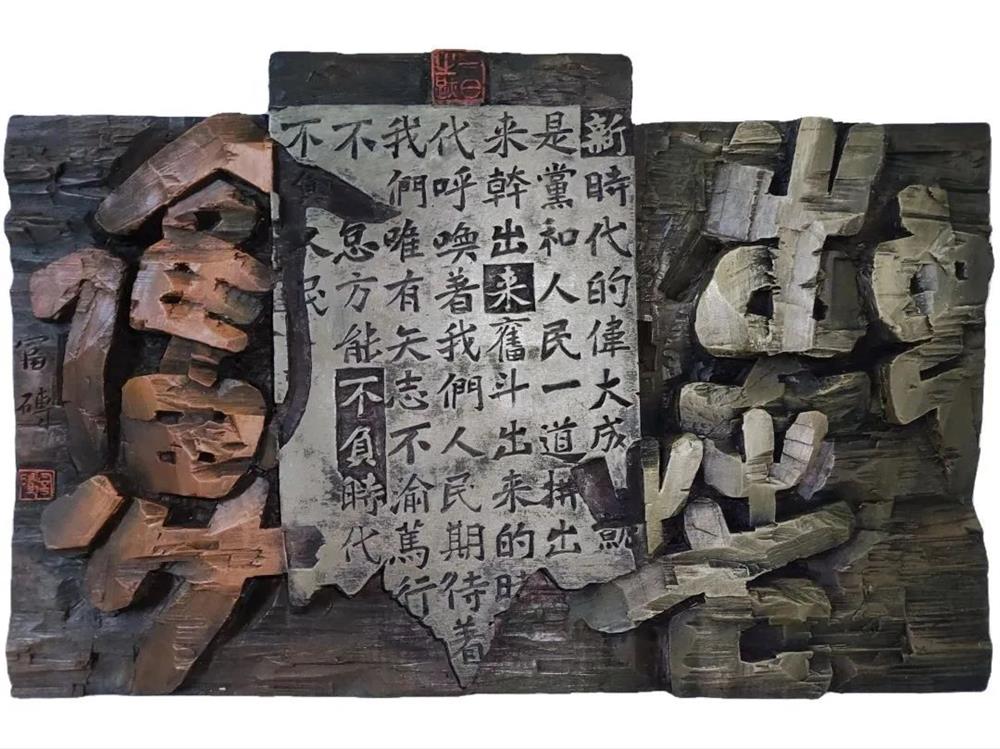 新時代的偉大成就
是黨和人民一道拼出
来幹出来奮斗出来的時
代呼喚著我們人民期待著
我們唯有矢志不渝篤行
不怠方能不負時代
不負人民